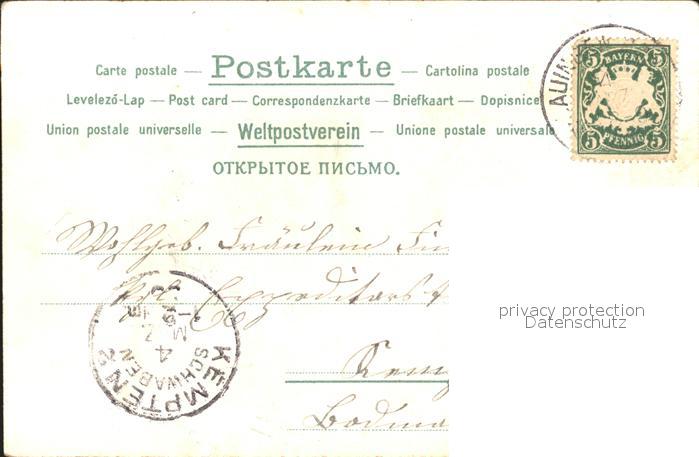 Carte postale — Postkarte — Cartolina postale
Levelező-Lap — Post card — Correspondenzkarte — Briefkaart — Dopisnice
Union postale universelle — Weltpostverein — Unione postale universale
ОТКРЫТОЕ ПИСЬМО.
5 BAYERN 5
5 PFENNIG 5
Wohlgeb. Fräulein
kgl. Expeditors
Kem
Bodma
KEMPTEN 2
SCHWABEN
4
privacy protection
Datenschutz